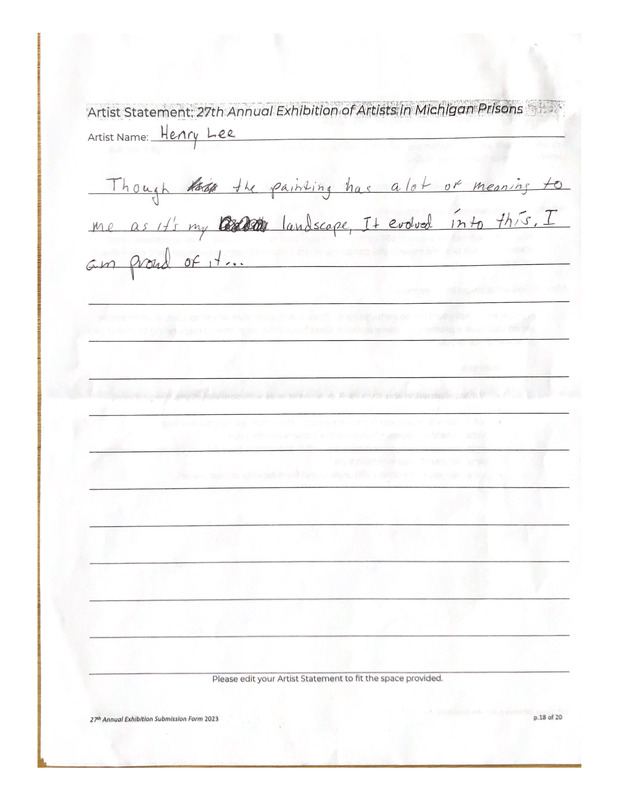 Artist Statement: 27th Annual Exhibition of Artists in Michigan Prisons
Artist Name: Henry Lee
Though the painting has a lot of meaning to
me as it's my landscape, It evolved into this, I
am proud of it...
Please edit your Artist Statement to fit the space provided.
27th Annual Exhibition Submission Form 2023
p.18 of 20